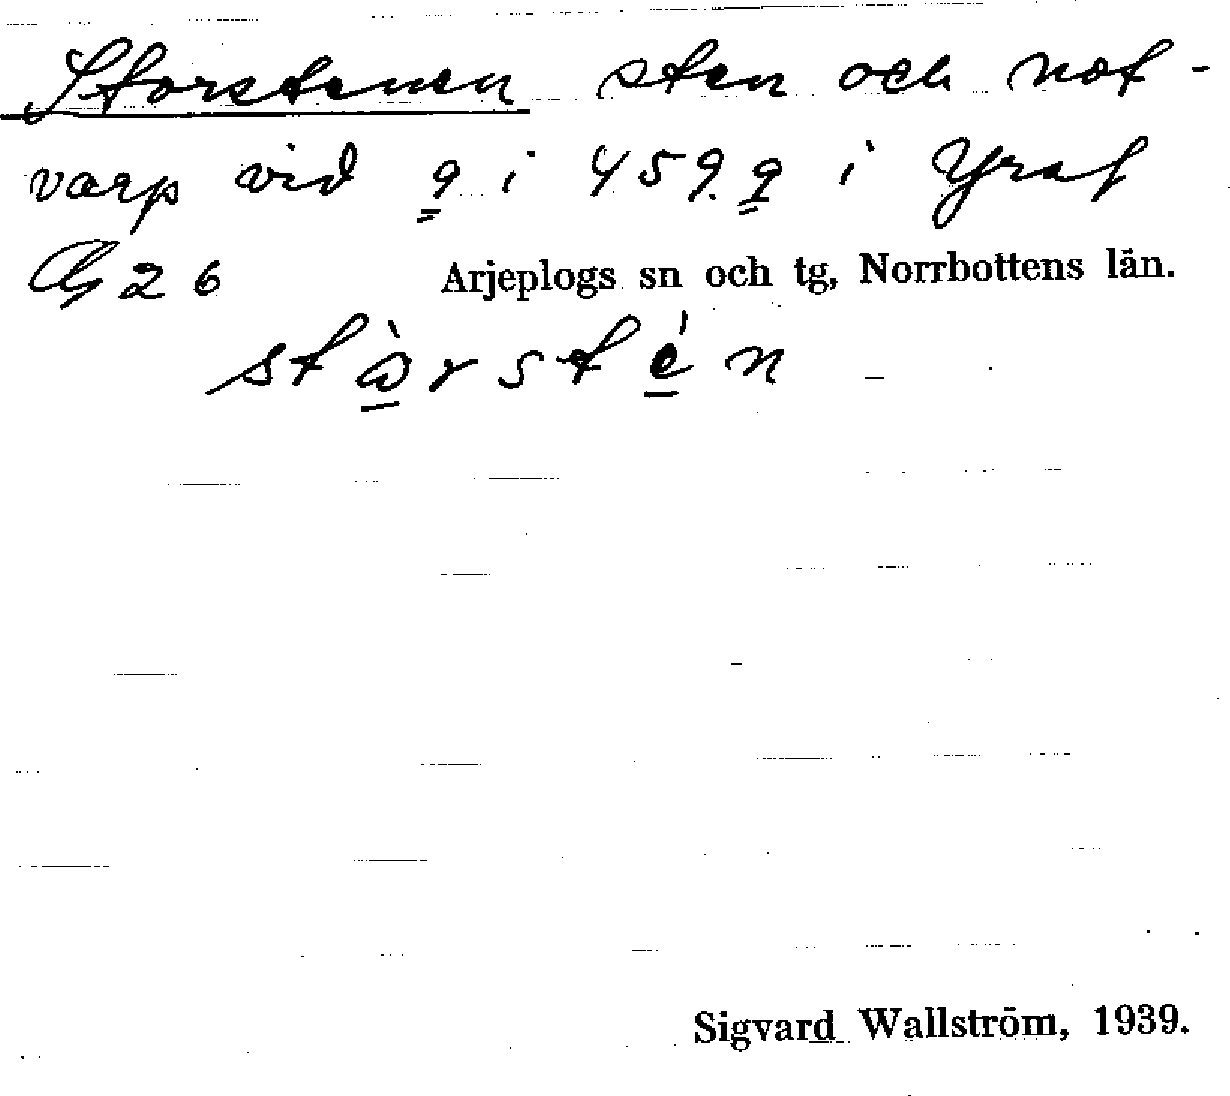 Storstenen sten och not-
varp vid 9 i 459.9 i Yraf
26 Arjeplogs sn och tg, Norrbottens län.
Sigvard Wallström, 1939.